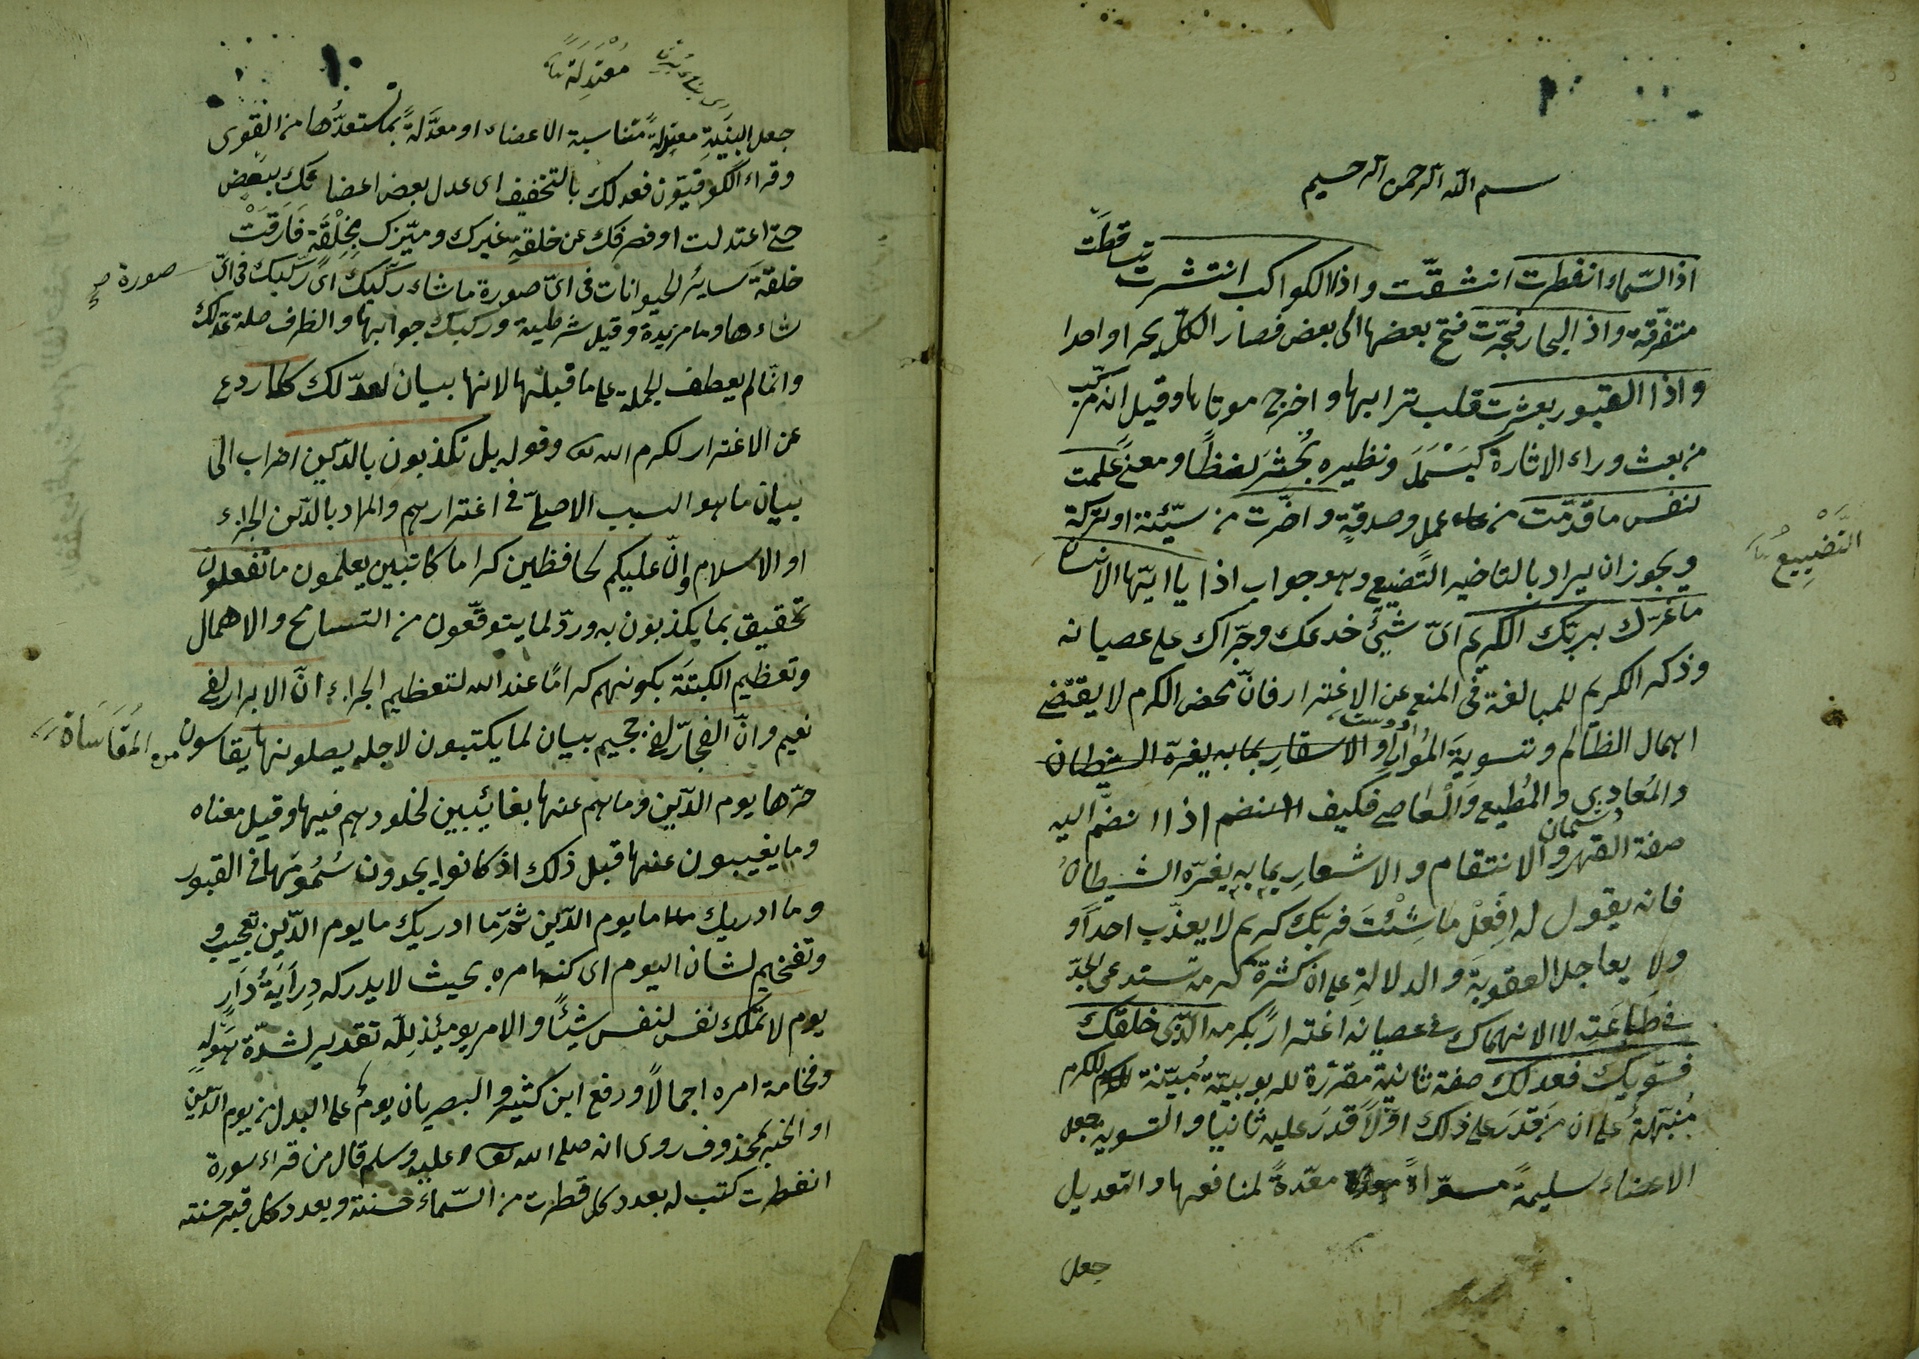 بسم الله الرحمن الرحيم
تساقطت
اذا السّماء انفطرت انشقّت واذا الكواكب انتشرت
متفرّقة واذا البحار فجّرت فتح بعضها الى بعض فصار الكلّ بحرا واحدا
واذا القبور بعثرت قلب ترابها واخرج موتاها وقيل انه مركّب
من بعث وراء الاثارة كَبَسْمَلَ ونظيره بُحْثِرَ لفظًا ومعنًى علمت
نفس ما قدّمت من عمل وصدقةٍ واخّرت من سيّئة او تركة
ويجوز ان يراد بالتاخير التّضييع وهو جواب اذا يا ايّها الانسان
التَّضْيِيعُ
ما غرّك بربّك الكريم اىّ شيئ خدعك وجرّاك على عصيانه
وذكر الكريم للمبالغة فى المنع عن الاغترار فانّ محض الكرم لا يقتضى
اهمال الظّالم وتسويةَ المُوالِى والاسقار بما به يغرّه الشيطان
دوست
والمُعادِى والمُطيع وَالعاصى فكيف اذا انضمّ اليه
دشمان
صفة القهر والانتقام والاشعارِ بما به يغرّه الشيطانُ
فانه يقول له اِفْعَلْ ما شِئْتَ فربّك كريم لا يعذّب احداً و
ولا يعاجل العقوبَةَ والدلالةِ على ان كثرة كرمه تستدعى الجدّ
فى طاعَتِه لا الانهماك فى عصيانه اغترارًا بكرمه الّذى خلقك
فسوّيك فعدلك صفة ثانية مقرّرة للربوبيّة مُبيّنة للكرم
مُنبّهة على ان من قدَرَ على ذلك اوّلاً قدَرَ عليه ثانيا والتسوية جعل
الاعضاء سليمةً مسوّاةً معدّةً لمنافعها والتعديل
جعل
مُعْتَدِلَةً
جعل البِنْيَةِ معتدلةً متناسبة الاعضاء او معدَّلةً بما تستعدُّها من القوى
وقراء الكوفيّون فعدلك بالتخفيف اى عدل بعض اعضائك ببعض
حتى اعتدلت او فصرفك عن خلقةِ غيرك وميّزك بِخِلْقَةٍ فَارَقَتْ
خلقةَ سايرُ الحيوانات فى اىّ صورة ما شاء ركّبك اى ركّبك فى اىّ
صورة صح
شاءها وما مزيدة وقيل شرطية وركبك جوابها والظرف صلة عدلك
وانّما لم يعطف الجملة على ما قبلها لانها بيان لعدلك كلّا ردع
عن الاغترار لكرم الله تعالى وقوله بل تكذبون بالدّين اضراب الى
بيان ما هو السبب الاصلىّ فى اغترارهم والمراد بالدّين الجزاء
او الاسلام وانّ عليكم لحافظين كراما كاتبين يعلمون ما تفعلون
تحقيق بما يكذبون به وردّ لما يتوقّعون من التسامح والاهمال
وتعظيم الكبتَة بكونهم كرامًا عند الله لتعظيم الجزاء انّ الابرار لفى
نعيم وانّ الفجّار لفى جحيم بيان لما يكتبون لاجله يصلونها يقاسون
من المُقَاسَاة
حرّها يوم الدّين وما هم عنها بغائبين لخلودهم فيها وقيل معناه
وما يغيبون عنها قبل ذلك اذ كانوا يجدون سُمُومَها فى القبور
وما ادريك ما يوم الدّين ثم ما ادريك ما يوم الدّين تعجيب و
وتفخيم لشان اليوم اى كنه امره بحيث لا يدركه دِرَايَةُ دَارٍ
يوم لا تملك نفس لنفس شيئًا والامر يومئذ لِلّه تقدير لشدّة هَوْلِهِ
وفخامة امره اجمالاً ورفع ابن كثير والبصريان يومُ على البدل من يوم الدّين
او الخبر لمحذوف روى انه صلى الله تعالى عليه وسلم قال من قراء سورة
انفطرت كتب له بعدد كل قطرت من السّماء حسنة وبعدد كل قبر حسنته